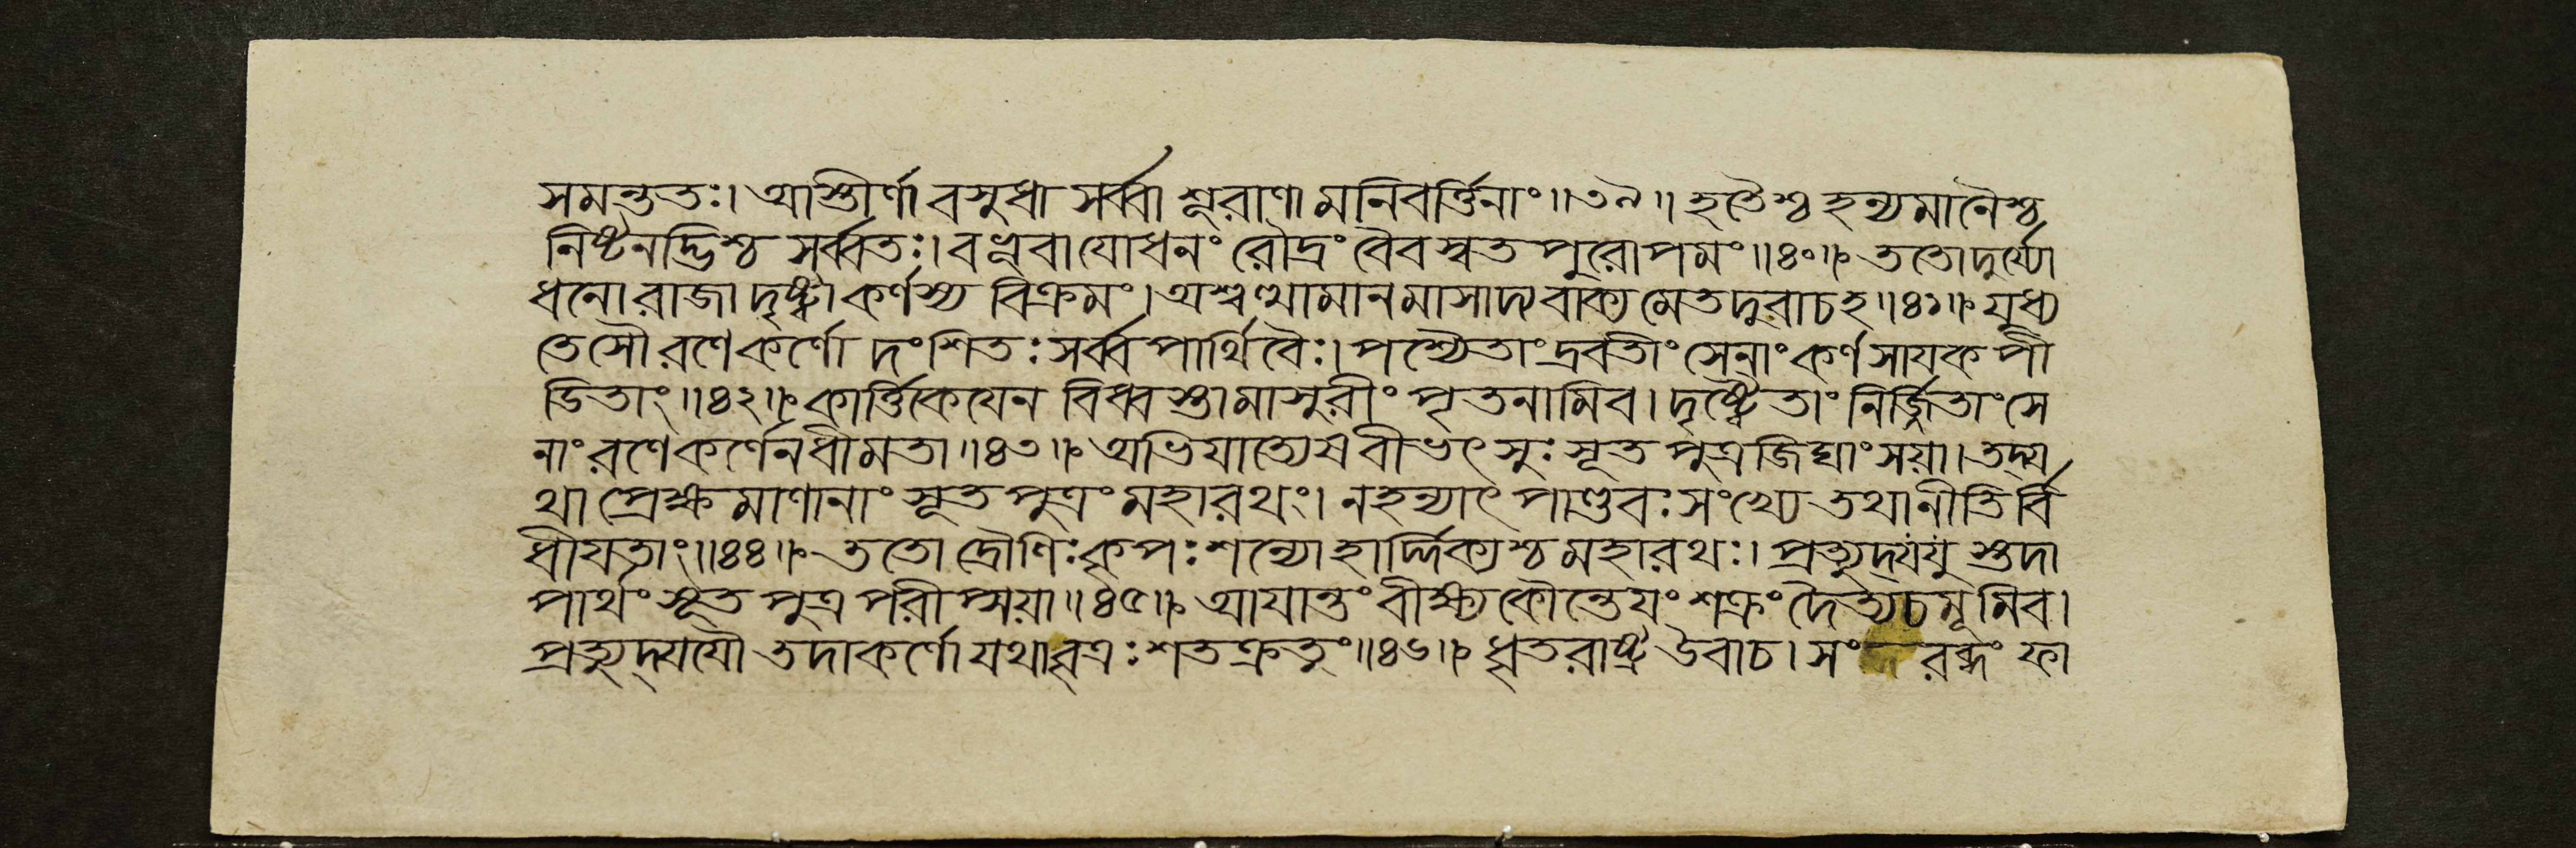 সমন্ততঃ। আস্তীর্ণা বসুধা সর্ব্বা শূরাণামনিবর্ত্তিনাং॥৩৯॥ হতৈশ্চ হন্যমানৈশ্চ
নিষ্টনদ্ভিশ্চ সর্ব্বতঃ। বভূবাযোধনং রৌদ্রং বৈবস্বত পুরোপমং॥৪০॥ ততোদুর্য্যো
ধনো রাজা দৃষ্ট্বা কর্ণস্য বিক্রমং। অশ্বত্থামানমাসাদ্য বাক্যমেতদুবাচহ॥৪১॥ যুধ্য
তেসৌ রণেকর্ণো দংশিতঃ সর্ব্ব পার্থিবৈঃ। পশ্যৈতাং দ্রবতীং সেনাং কর্ণ সাযক পী
ডিতাং॥৪২॥ কার্ত্তিকেযেন বিধ্বস্তামাসুরীং পৃতনামিব। দৃষ্ট্বৈতাং নির্জ্জিতাং সে
নাং রণেকর্ণেনধীমতা॥৪৩॥ অভিযাত্যেষবীভৎসুঃ সূত পুত্রজিঘাংসয়া। তদ্য
থা প্রেক্ষমাণানাং সূত পুত্রং মহারথং। নহন্যাৎ পাণ্ডবঃ সংখ্যে তথানীতির্বি
ধীযতাং॥৪৪॥ ততো দ্রৌণিঃ কৃপঃ শল্যো হার্দ্দিক্যশ্চমহারথঃ। প্রত্যুদ্যযু স্তদা
পার্থং সূত পুত্র পরীপ্সয়া॥৪৫॥ আযান্তং বীক্ষ্য কৌন্তেযং শক্রং দৈত্যচমূমিব।
প্রত্যুদ্যযৌ তদাকর্ণো যথাবৃত্রঃ শতক্রতুং॥৪৬॥ ধৃতরাষ্ট্র উবাচ। সং রব্ধং ফা